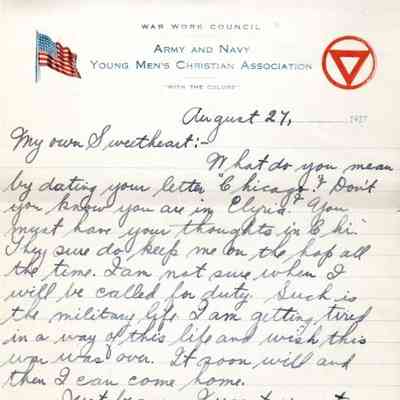 WAR WORK COUNCIL
ARMY AND NAVY
YOUNG MEN'S CHRISTIAN ASSOCIATION
"WITH THE COLORS"
August 27, 1917
My own Sweetheart:-
What do you mean
by dating your letter "Chicago"? Don't
you know you are in Elyria? You
must have your thoughts in "Chi."
They sure do keep me on the hop all
the time. I am not sure when I
will be called for duty. Such is
the military life. I am getting tired
in a way of this life and wish this
war was over. It soon will and
then I can come home.